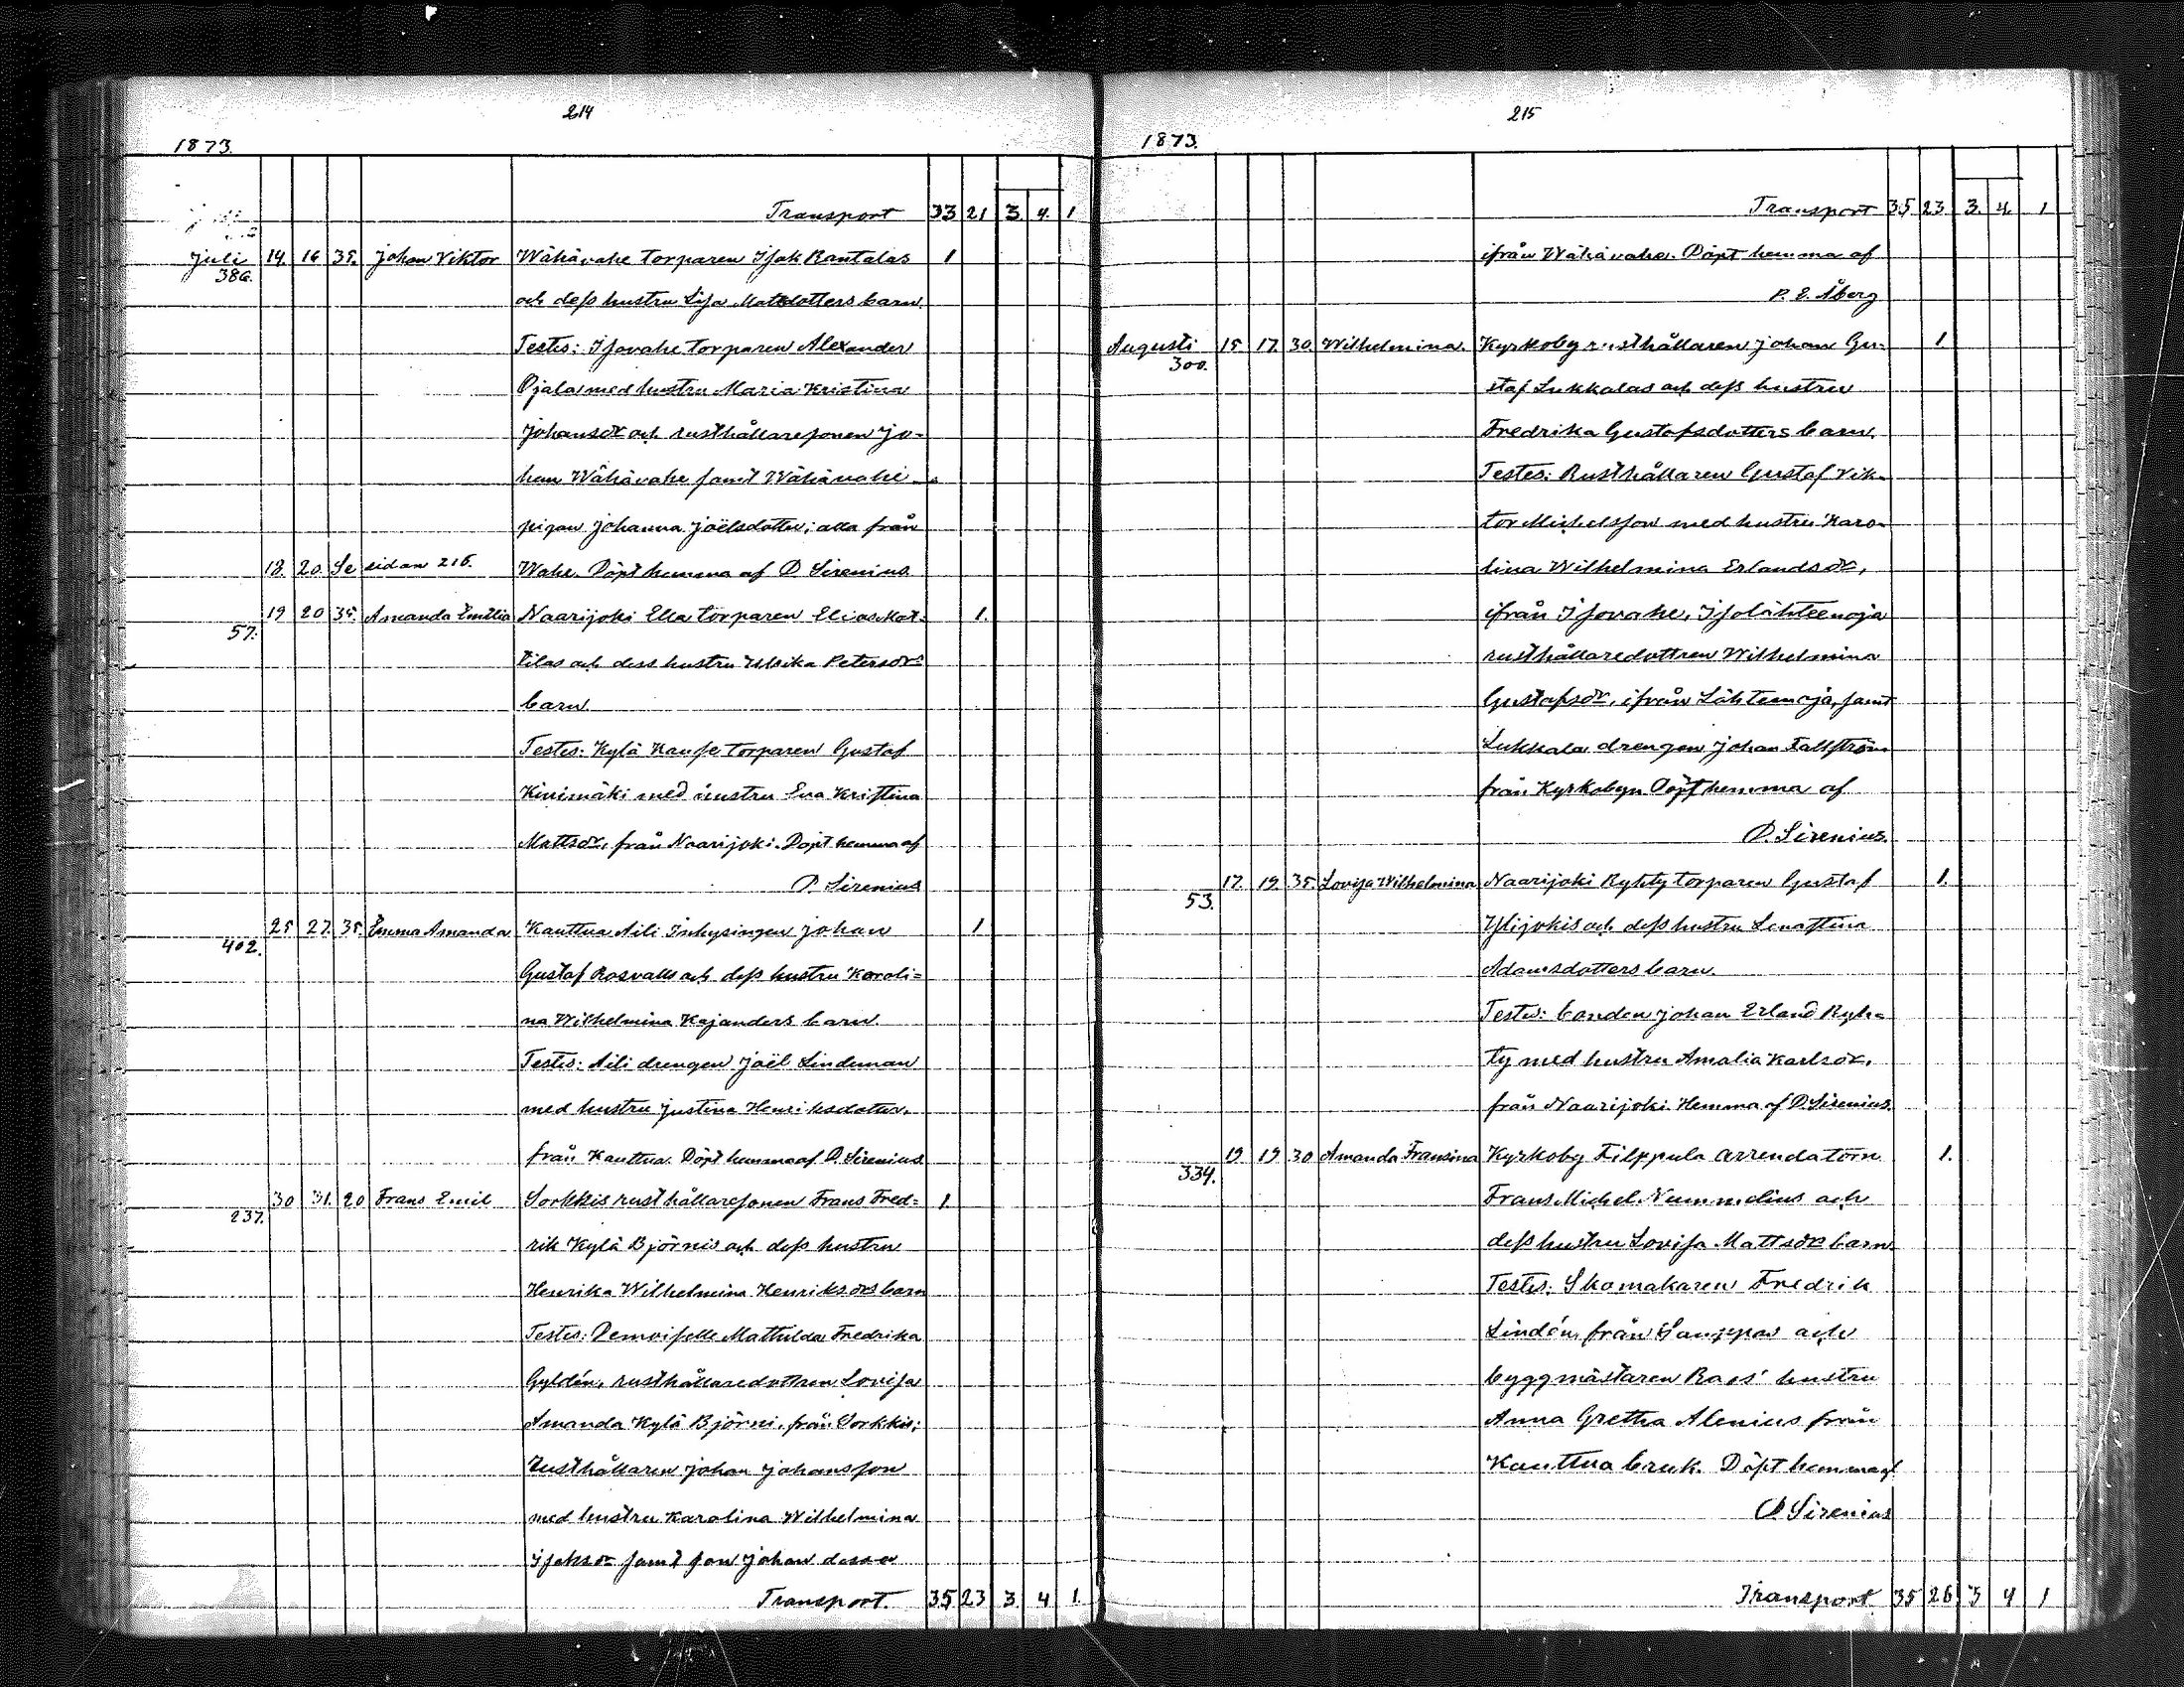 214
1873.
Transport 33 21 3. 4. 1
Juli 14. 16 35. Johan Viktor Wähävahe torparen Isak Rantalas 1
386.
och dess hustru Lisa Mattsdotters barn.
Testes: Isovahe torparen Alexander
Ojala med hustru Maria Kristina
Johansdr och rusthållaresonen Jo-
han Wähävahe samt Wähävahe
pigan Johanna Joëlsdotter; alla från
18. 20. Se sidan 216. Wahe. Döpt hemma af D. Sirenius.
19 20 35. Amanda Emilia Naarijoki Ella torparen Elias Mat- 1.
57.
tilas och dess hustru Ulrika Petersdrs
barn.
Testes: Kylä Kaufe torparen Gustaf
Kivimäki med hustru Eva Kristina
Mattsdr, från Naarijoki. Döpt hemma af
D. Sirenius
25 27. 35. Emma Amanda Kauttua Aili Inhysingen Johan 1.
402.
Gustaf Rosvalls och dess hustru Karoli=
na Wilhelmina Kajanders barn.
Testes: Aili drengen Joël Lindeman
med hustru Justina Henriksdotter,
från Kauttua. Döpt hemma af D. Sirenius
30 31. 20 Frans Emil Sorkkis rusthållaresonen Frans Fred= 1.
237.
rik Kylä Björnis och dess hustru
Henrika Wilhelmina Henriksdrs barn
Testes: Demoiselle Mathilda Fredrika
Gyldén, rusthållaredottren Lovisa
Amanda Kylä Björni, från Sorkkis;
Rusthållaren Johan Johansson
med hustru Karolina Wilhelmina
Isaksdr samt son Johan dessa
Transport. 35 23 3. 4 1.
215
1873.
Transport 35 23. 3. 4. 1
ifrån Wähävahe. Döpt hemma af
P. E. Åberg
Augusti 15. 17. 30. Wilhelmina. Kyrkoby rusthållaren Johan Gu- 1.
300.
staf Lukkalas och dess hustru
Fredrika Gustafsdotters barn.
Testes: Rusthållaren Gustaf Vik-
tor Michelsson med hustru Karo-
lina Wilhelmina Erlandsdr,
ifrån Isovahe, Isolähteenoja
rusthållaredottren Wilhelmina
Gustafsdr, ifrån Lähteenoja, samt
Lukkala drengen Johan Fallström
från Kyrkobyn Döpt hemma af
D. Sirenius.
17. 19. 35. Lovisa Wilhelmina Naarijoki Ryhty torparen Gustaf 1.
53.
Ylijokis och dess hustru Lenastina
Adamsdotters barn.
Testes: bonden Johan Erland Ryh-
ty med hustru Amalia Karlsdr,
från Naarijoki. Hemma af D. Sirenius.
19 19 30 Amanda Fransina Kyrkoby Filppula arrendatorn 1.
334.
Frans Michel Nummelins och
dess hustru Lovisa Mattsdrs barn
Testes: Skomakaren Fredrik
Lindén, från och
byggmästaren Raas' hustru
Anna Gretha Alenius från
Kauttua bruk. Döpt hemma af
D. Sirenius
Transport. 35 26 3 4 1